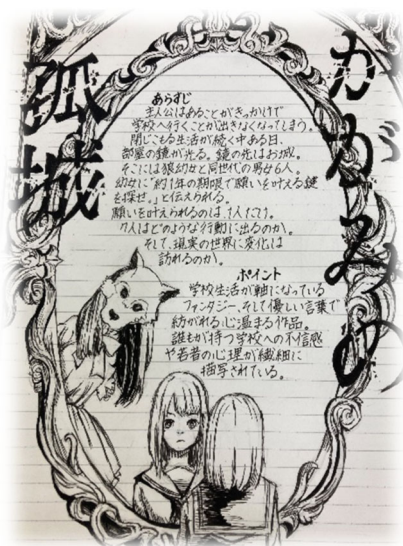 かがみの
孤城
あらすじ
主人公はあることがきっかけで
学校へ行くことが出きなくなってしまう。
閉じこもる生活が続く中ある日、
部屋の鏡が光る。鏡の先はお城。
そこには狼幼女と同世代の男女6人。
幼女に“約1年の期限で願いを叶える鍵
を探せ。」と伝えられる。
願いを叶えられるのは、1人だけ。
7人はどのような行動に出るのか。
そして、現実の世界に変化は
訪れるのか。
ポイント
学校生活が軸になっている
ファンタジー、そして優しい言葉で
紡がれる心温まる作品。
誰もが持つ学校への不信感
や若者の心理が繊細に
描写されている。